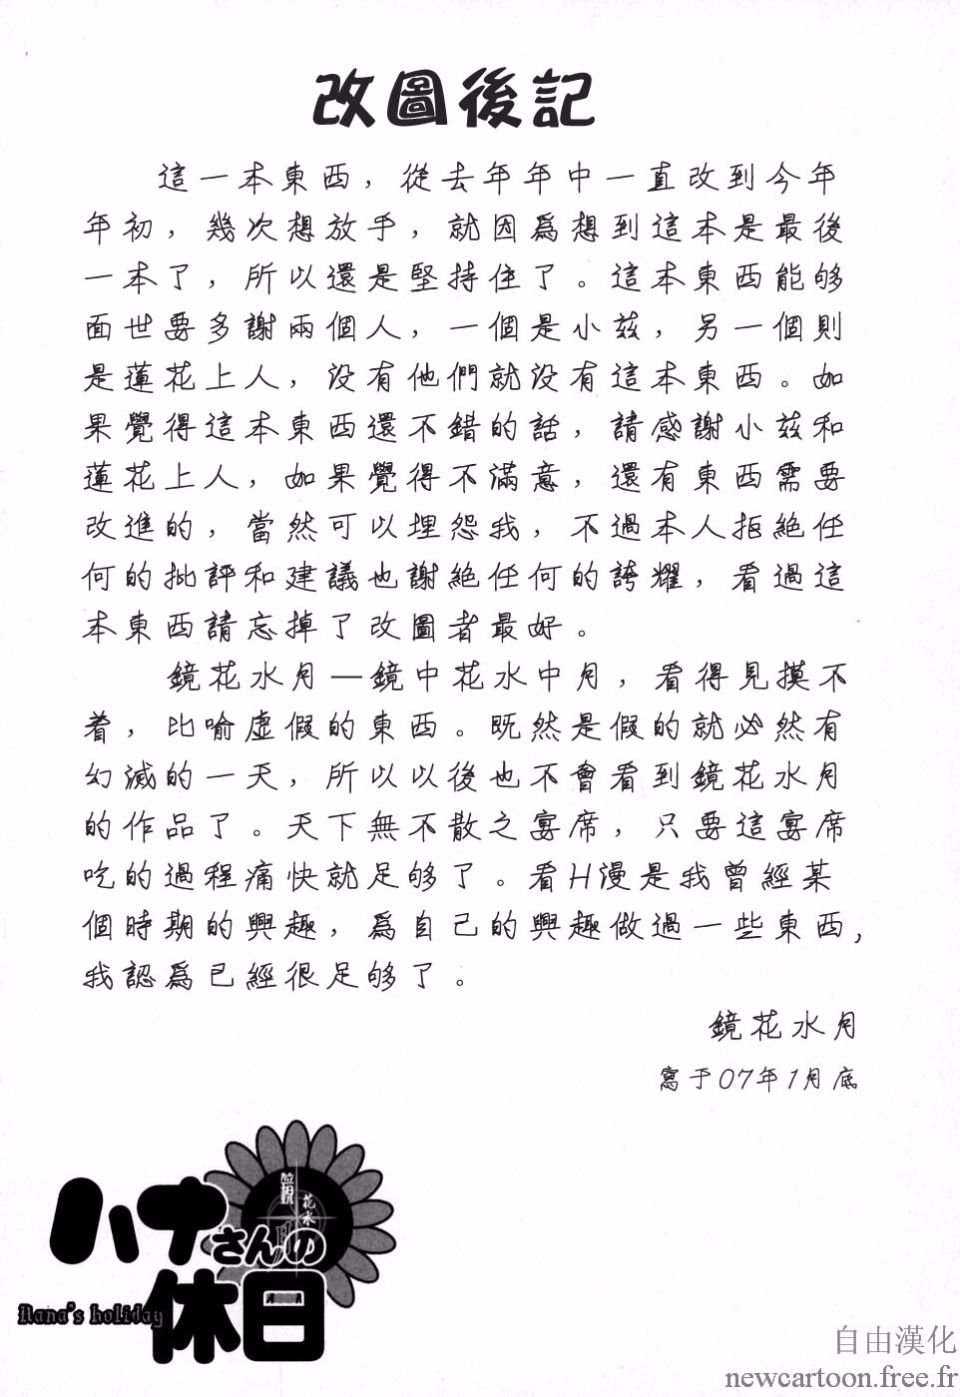 改圖後記
這一本東西，從去年年中一直改到今年
年初，幾次想放手，就因爲想到這本是最後
一本了，所以還是堅持住了。這本東西能够
面世要多謝兩個人，一個是小兹，另一個則
是蓮花上人，没有他們就没有這本東西。如
果覺得這本東西還不錯的話，請感謝小兹和
蓮花上人，如果覺得不滿意，還有東西需要
改進的，當然可以埋怨我，不過本人拒絶任
何的批評和建議也謝絶任何的誇耀，看過這
本東西請忘掉了改圖者最好。
鏡花水月—鏡中花水中月，看得見摸不
着，比喻虚假的東西。既然是假的就必然有
幻滅的一天，所以以後也不會看到鏡花水月
的作品了。天下無不散之宴席，只要這宴席
吃的過程痛快就足够了。看H漫是我曾經某
個時期的興趣，爲自己的興趣做過一些東西，
我認爲已經很足够了。
鏡花水月
寫于07年1月底
鏡
花水
月
ハナさんの
休日
Nana's holiday
自由漢化
newcartoon.free.fr